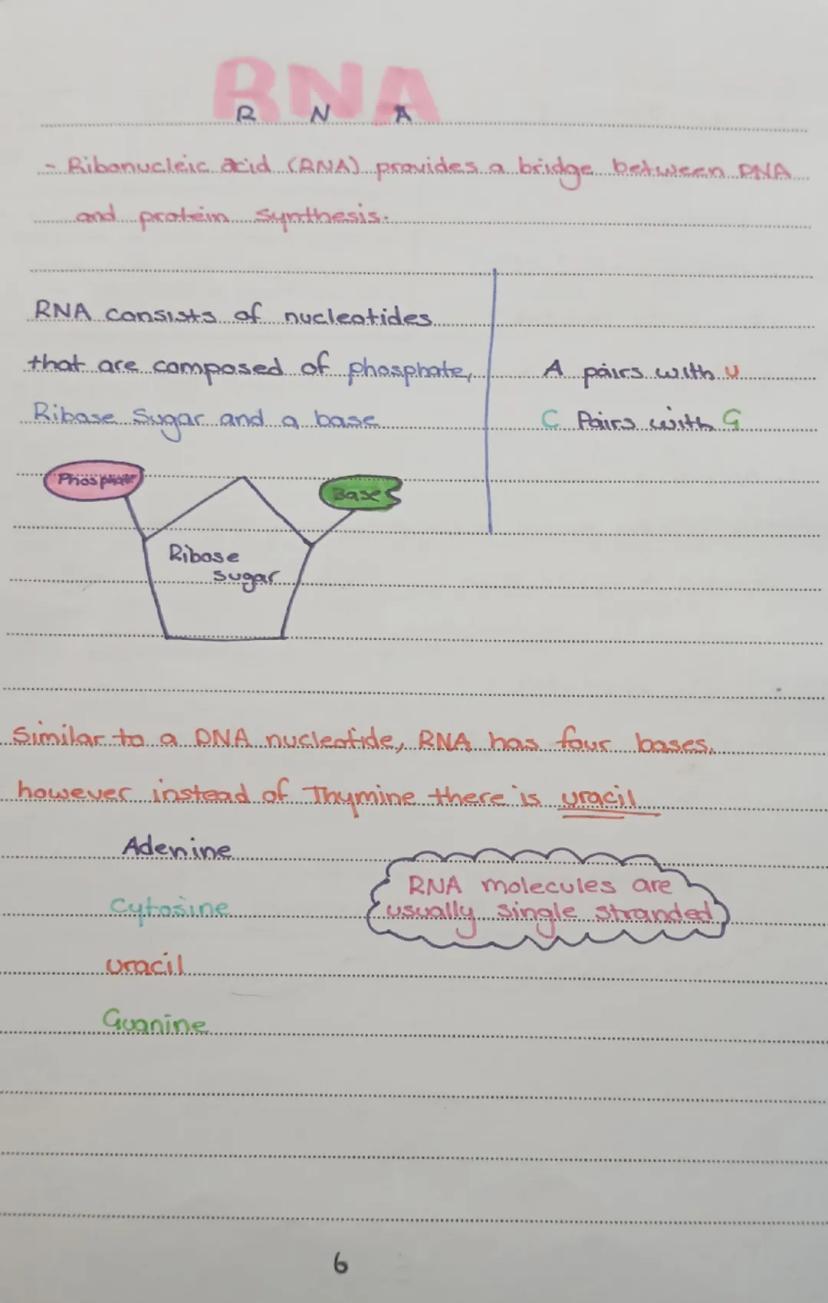 RNA
R N A
- Ribonucleic acid (RNA) provides a bridge between DNA
and protein synthesis.
RNA consists of nucleotides
that are composed of phosphate,
Ribose Sugar and a base
A pairs with U
C Pairs with G
Phosphate
Base
Ribose
sugar
Similar to a DNA nucleotide, RNA has four bases,
however instead of Thymine there is uracil
Adenine
Cytosine
uracil
Guanine
RNA molecules are
usually single stranded
6